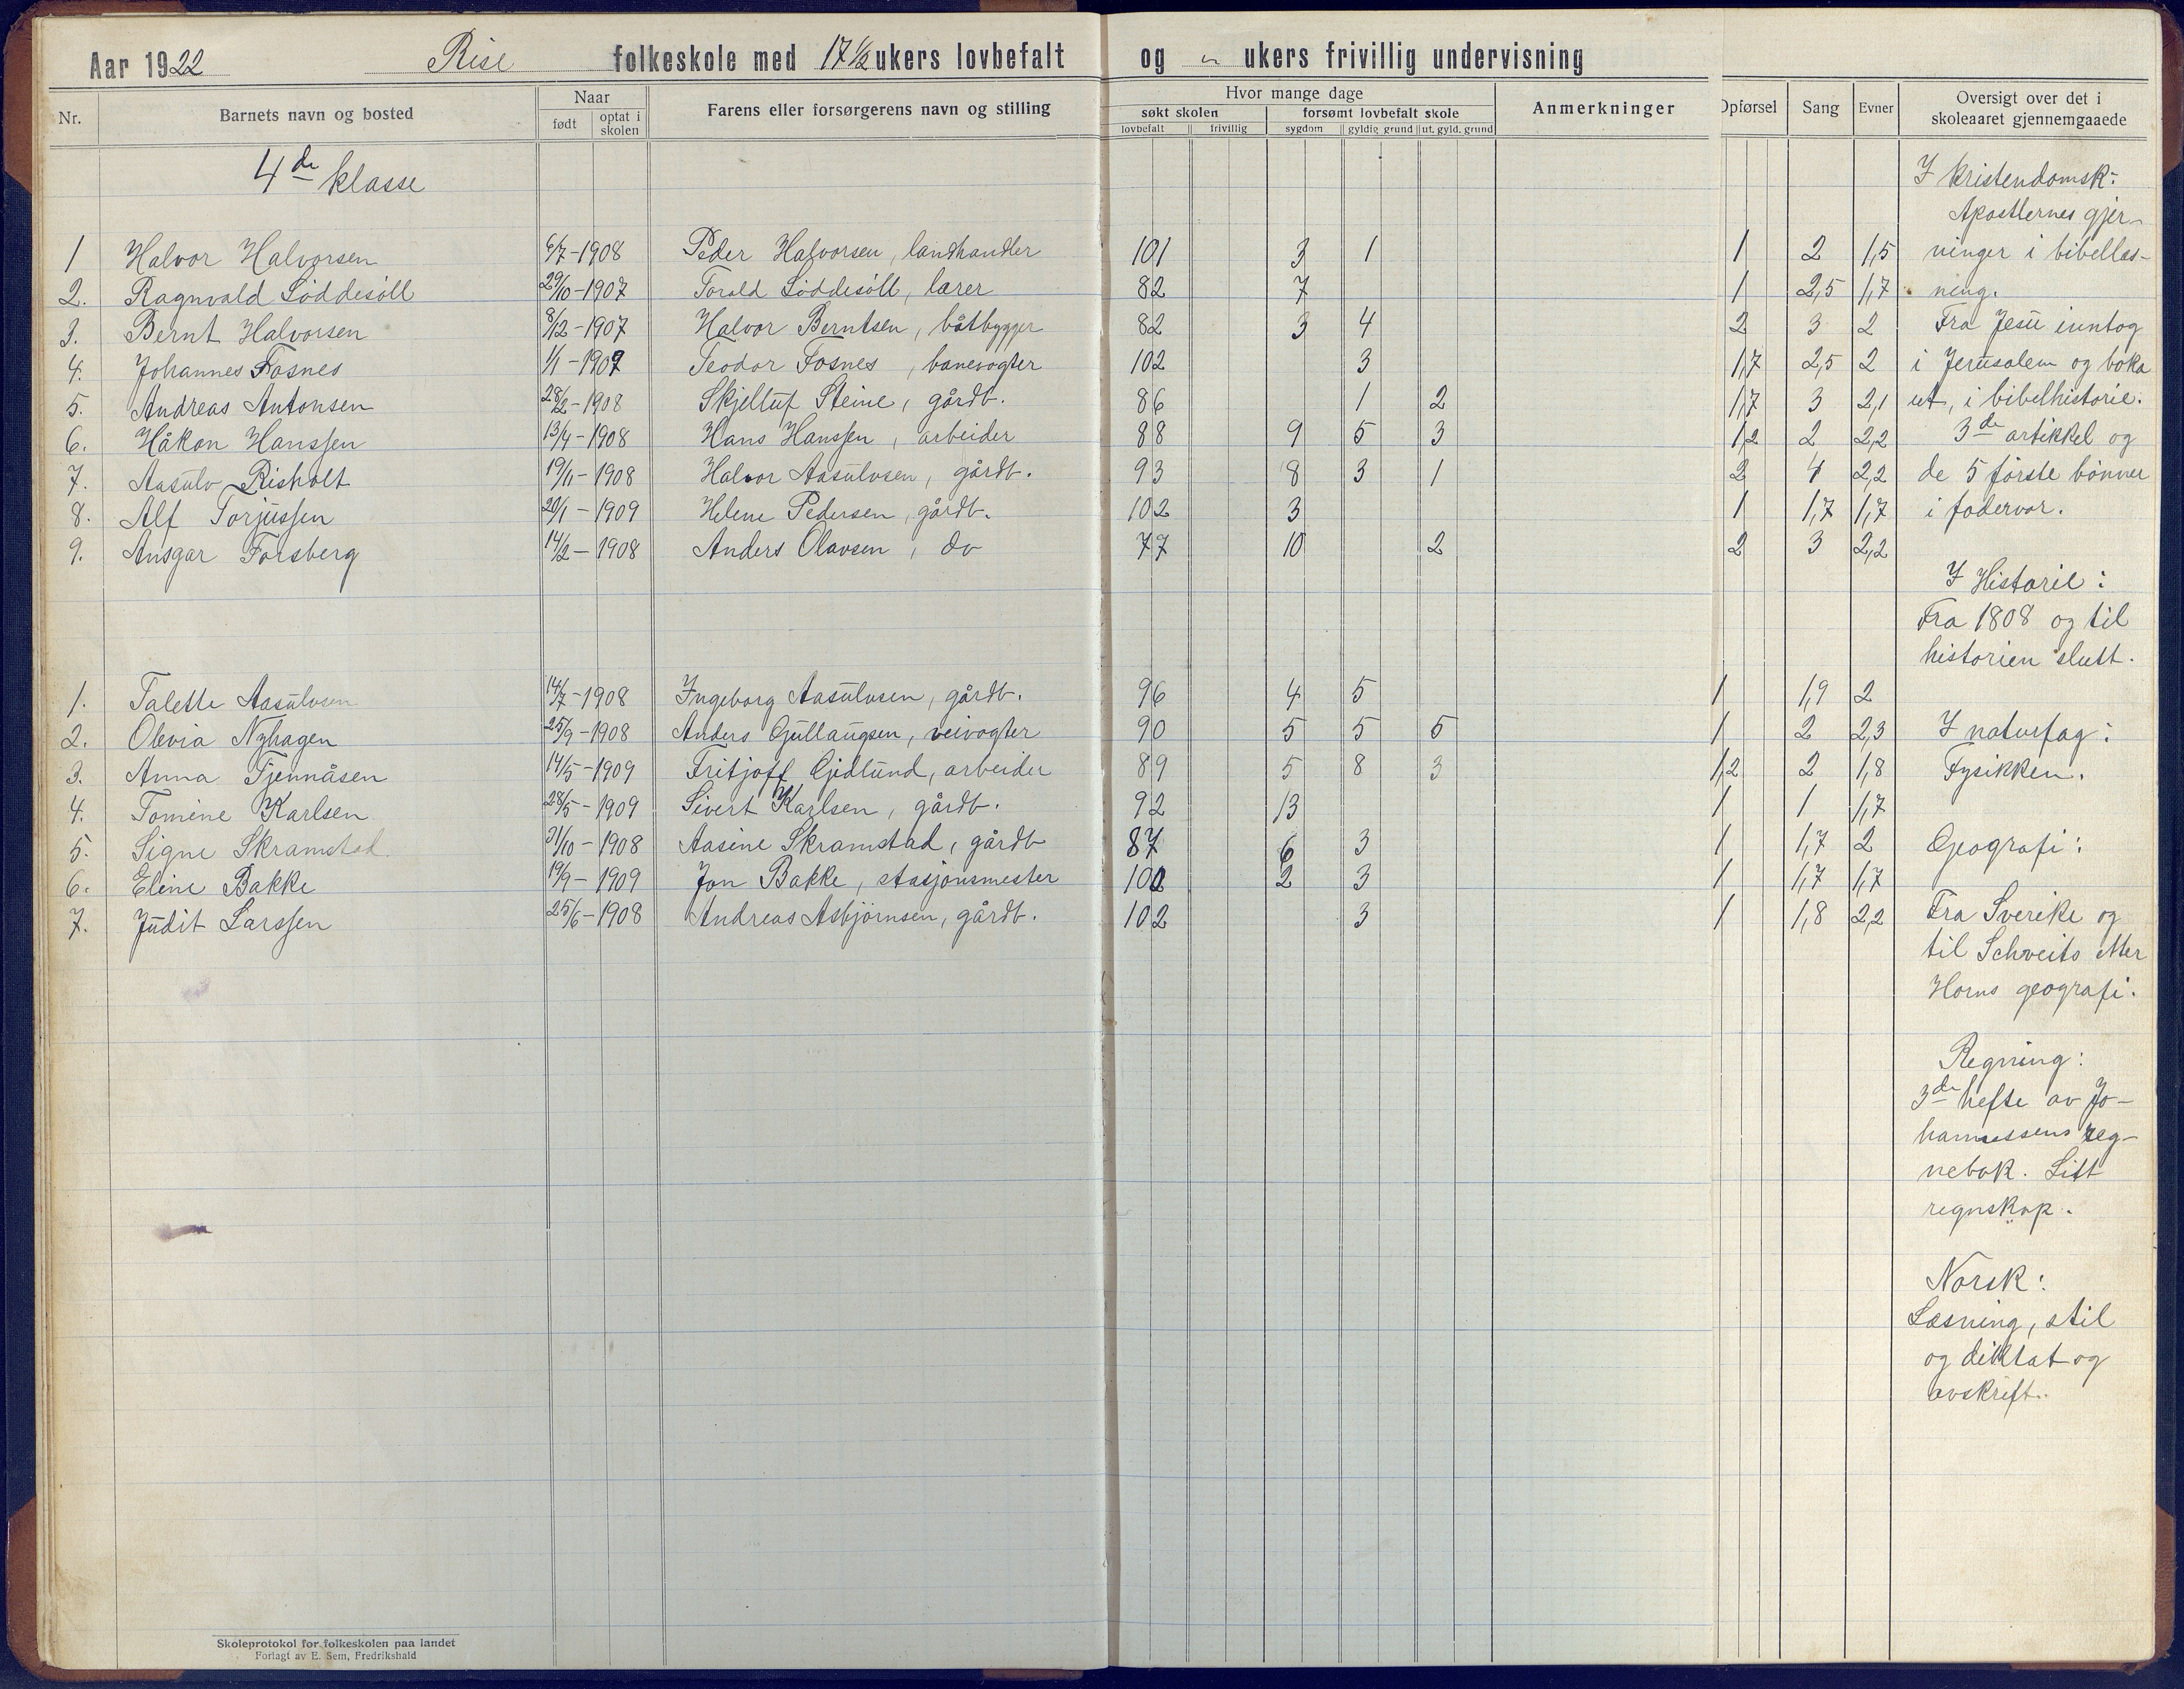 Aar 1922 Rise folkeskole med 17 1/2 ukers lovbefalt og " ukers frivillig undervisning
Nr. Barnets navn og bosted Naar født optat i skolen Farens eller forsørgerens navn og stilling Hvor mange dage søkt skolen lovbefalt frivillig forsømt lovbefalt skole sygdom gyldig grund ut. gyld. grund Anmerkninger Opførsel Sang Evner Oversigt over det i skoleaaret gjennemgaaede
4de klasse
1 Halvor Halvorsen 6/7-1908 Peder Halvorsen, landhandler 101 3 1 1 2 1,5
2. Ragnvald Løddesöll 29/10-1907 Torald Løddesöll, lærer 82 7 1 2,5 1,7
3. Bernt Halvorsen 8/12-1907 Halvor Berntsen, båtbygger 82 3 4 2 3 2
4. Johannes Fosnes 1/1-1909 Teodor Fosnes, banevogter 102 3 1,7 2,5 2
5. Andreas Antonsen 28/2-1908 Skjelluf Steine, gårdb. 86 1 2 1,7 3 2,1
6. Håkon Hanssen 13/4-1908 Hans Hanssen, arbeider 88 9 5 3 1,2 2 2,2
7. Aasulv Risholt 19/11-1908 Halvor Aasulvsen, gårdb. 93 8 3 1 2 4 2,2
8. Alf Torjussen 20/1-1909 Helene Pedersen, gårdb. 102 3 1 1,7 1,7
9. Ansgar Forsberg 14/2-1908 Anders Olavsen, do 77 10 2 2 3 2,2
1. Talette Aasulvsen 14/7-1908 Ingeborg Aasulvsen, gårdb. 96 4 5 1 1,9 2
2. Olevia Nyhagen 25/9-1908 Anders Gullaugsen, veivogter 90 5 5 5 1 2 2,3
3. Anna Tjennåsen 14/5-1909 Fritjoff Gjedlund, arbeider 89 5 8 3 1,2 2 1,8
4. Tomine Karlsen 28/5-1909 Sivert Karlsen, gårdb. 92 13 1 1 1,7
5. Signe Skramstad 31/10-1908 Aasine Skramstad, gårdb 87 6 3 1 1,7 2
6. Eline Bakke 19/9-1909 Jon Bakke, stasjonsmester 100 2 3 1 1,7 1,7
7. Judit Larssen 25/6-1908 Andreas Asbjörnsen, gårdb. 102 3 1 1,8 2,2
I kristendomsk:
Apostlernes gjer-
ninger i bibellæs-
ning.
Fra Jesu inntog
i Jerusalem og boka
ut, i bibelhistorie.
3de artikkel og
de 5 förste bönner
i fadervor.
I Historie:
Fra 1808 og til
historien slutt.
I naturfag:
Fysikken.
Geografi:
Fra Sverike og
til Schveits etter
Horns geografi.
Regning:
3de hefte av Jo-
hannessens reg-
nebok. Litt
regnskap.
Norsk:
Læsning, stil
og diktat og
avskrift.
Skoleprotokol for folkeskolen paa landet
Forlagt av E. Sem, Fredrikshald